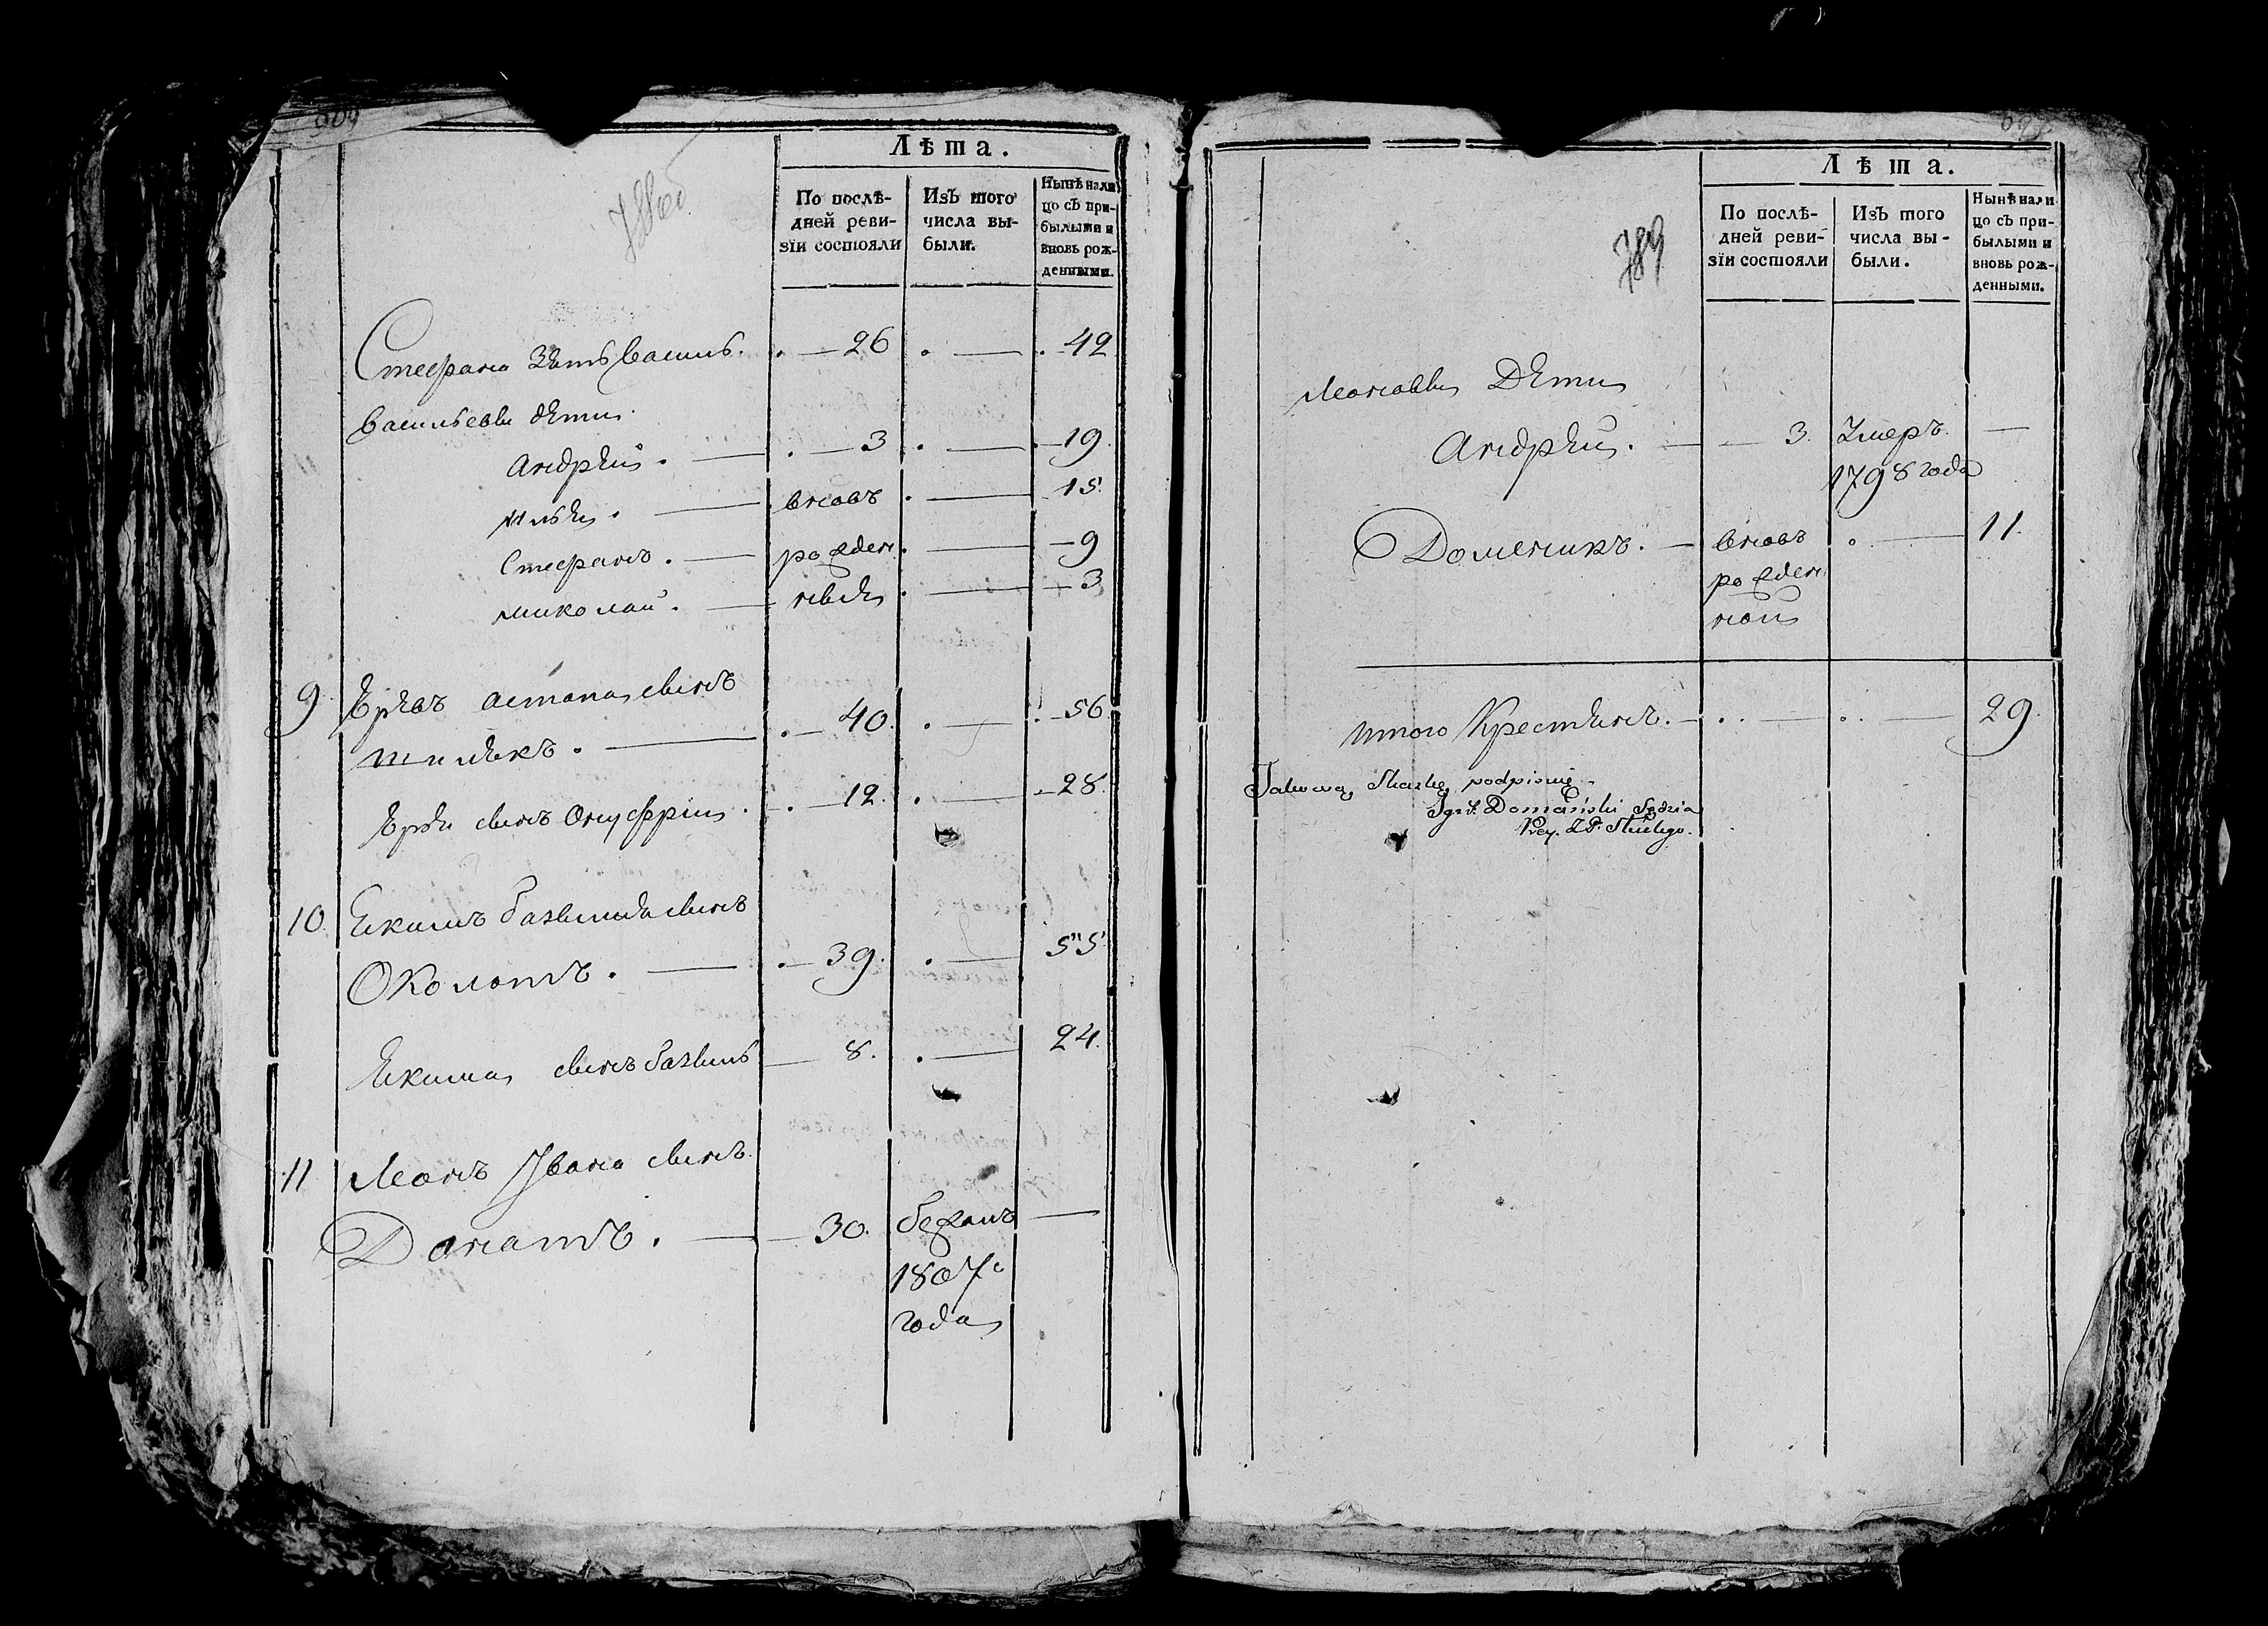 Лѣта.
По послѣ-
дней реви-
зїи состояли
Изъ того
числа вы-
были.
Нынѣ нали
цо съ при-
былыми и
вновь рож-
денными.
Стефана Зять Василь. 26 42
Васильевы дѣти
Андрѣй. 3 19.
Илья. вновъ 15.
Стефанъ. рожден 9
Миколай. ныя 3
9 астапа сынъ
40. 56.
сынъ Онуфрій. 12. 28.
10. Якимъ сынъ
Околотъ. 39. 55
Якима сынъ 8. 24.
11 Леонъ Ивана сынъ
Донатъ. 30. бежалъ —
1807
года
789
Лѣта.
По послѣ-
дней реви-
зїи состояли
Изъ того
числа вы-
были.
Нынѣ нали
цо съ при-
былыми и
вновь рож-
денными.
Леоновы Дѣти
Андрѣй. 3. Умеръ —
1798 года
Доменикъ. вновъ 11.
рожден
ной
Итого Крестьянъ. 29.
Takową Skazkę podpisuię
Domański Sędzia